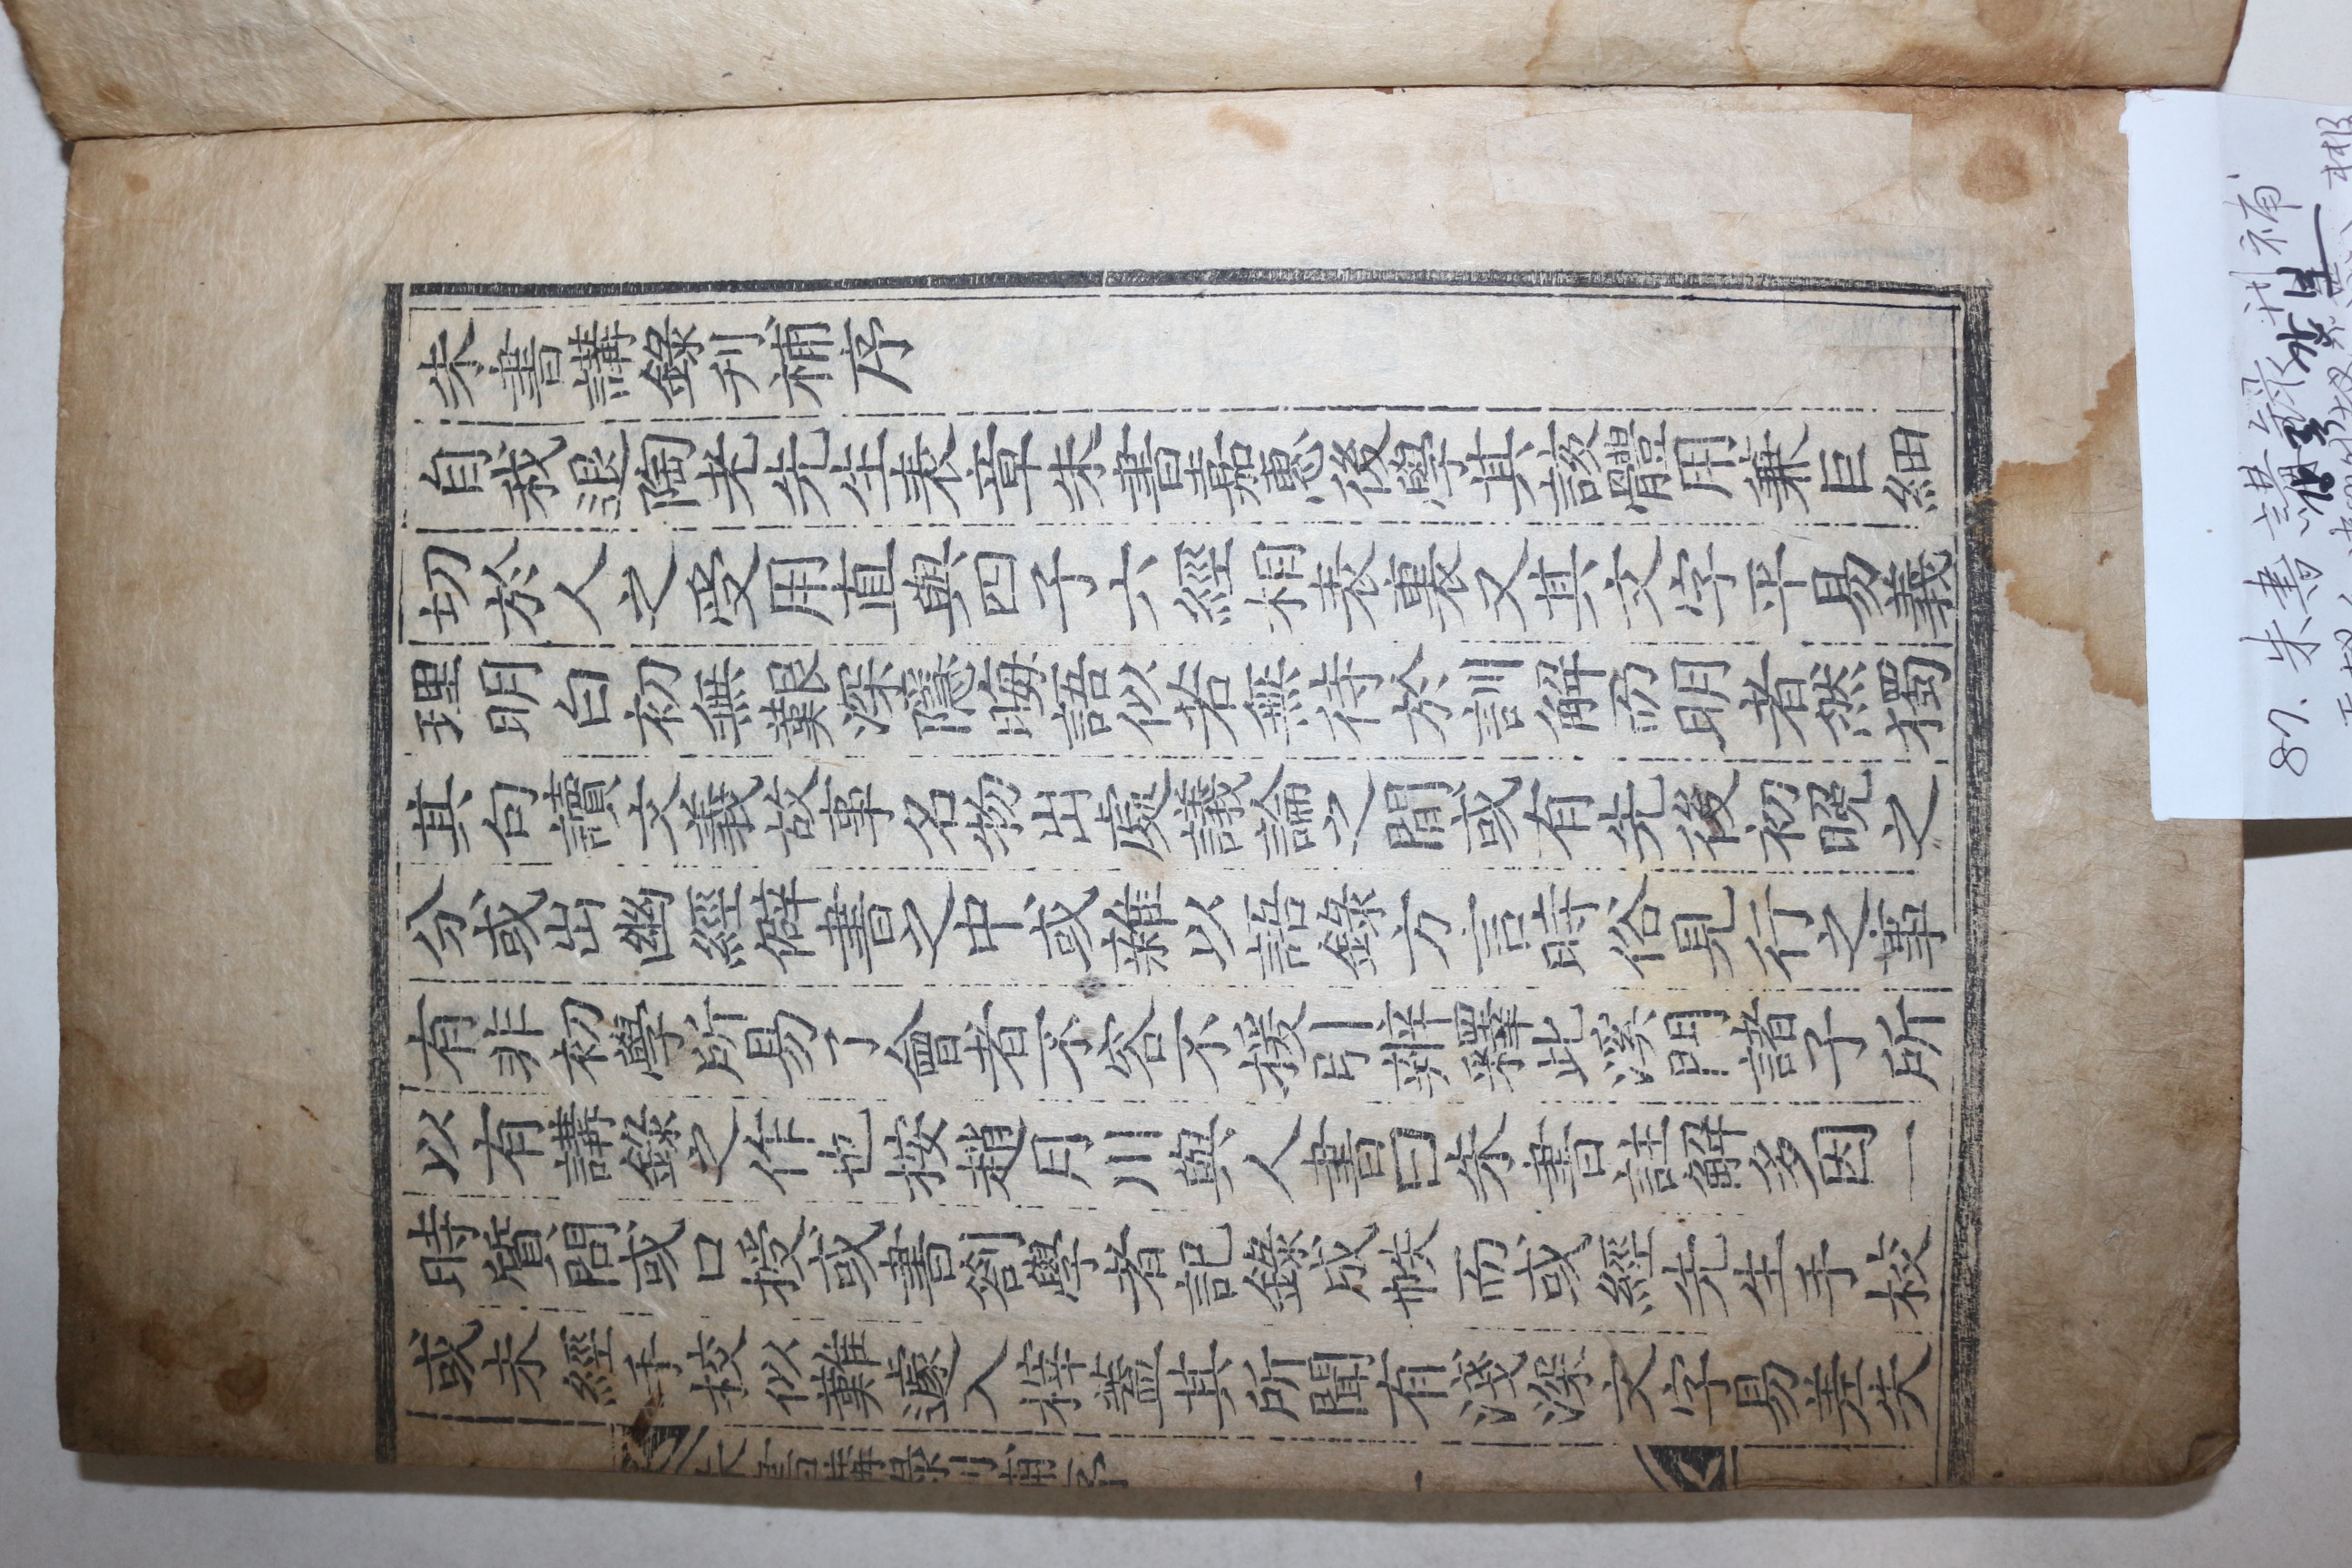 朱書講錄刊補序
自我退陶老先生表章朱書嘉惠後學其該體用兼巨細
切於人之受用直與四子六經相表裏又其文字平易義
理明白初無艱深隱晦語似若無待於訓解而明者然獨
其句讀文義故事名物出處議論之間或有先後初晚之
分或出幽經僻書之中或雜以語錄方言時俗見行之事
有非初學所易了會者不容不援引辨釋此溪門諸子所
以有講錄之作也按趙月川與人書曰朱書註解多因一
時質問或口授或書劄學者記錄成帙而或經先生手校
或未經手校似難遽入梓盖其所聞有淺深文字易差失
朱書講錄刊補序 一
87. 朱書講錄刊補